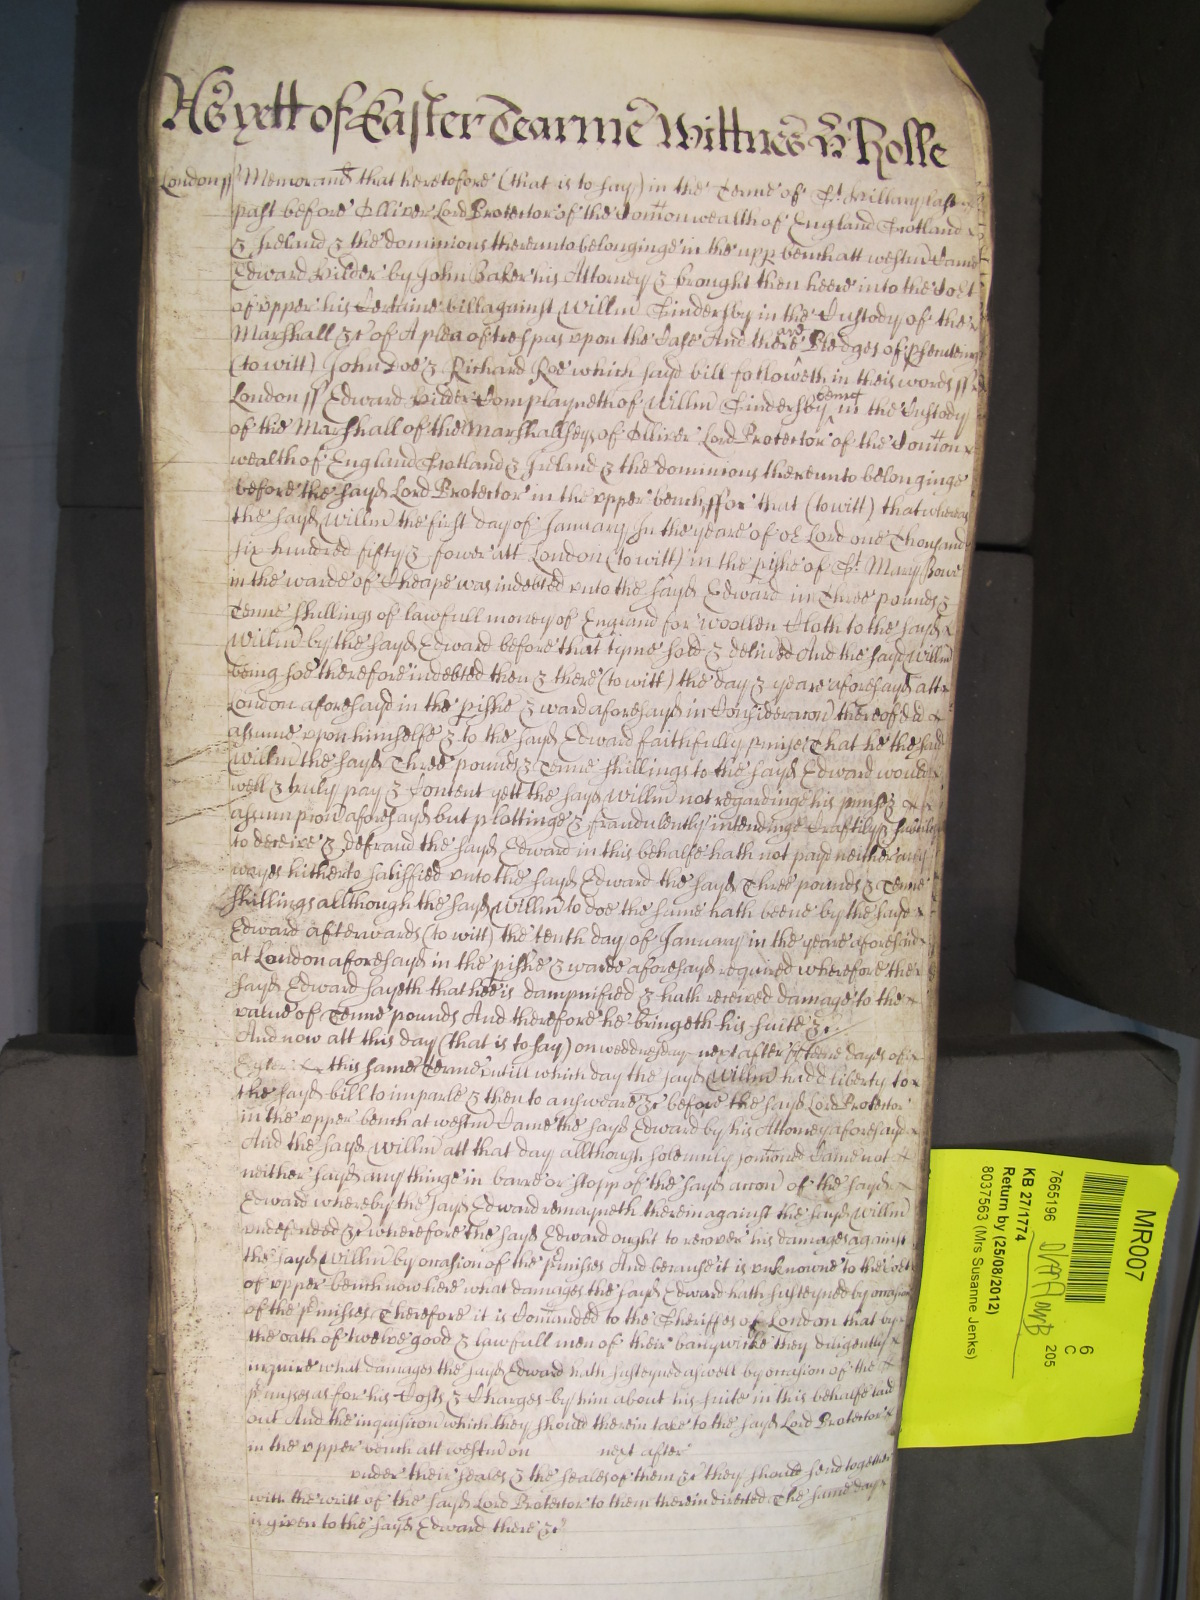 As yett of Easter Tearme Wittnes H Rolle
London ss Memorand that heretofore (that is to say) in the Terme of St. Hillary last
past before Olliver Lord Protector of the Comonwealth of England Scotland
& Ireland & the dominions thereunto belonginge in the upp bench att westm Came
Edward by John Baker his Attorney & brought then heere into the Cort
of upper his Certaine bill against Willm Kindersby in the Custody of the
Marshall &c of A plea of trespas upon the Case And there are Pledges of
(to witt) John Doe & Richard Roe which sayd bill followeth in theis words ss
London ss Edward Complayneth of Willm Kindersby being in the Custody
of the Marshall of the Marshallsey of Olliver Lord Protector of the Comon
wealth of England Scotland & Ireland & the dominions thereunto belonginge
before the sayd Lord Protector in the upper bench ffor that (to witt) that whereas
the sayd Willm the first day of January In the yeare of or Lord one Thousand
six hundred fifty & fower att London (to witt) in the pishe of St. Mary Bowe
in the warde of Cheape was indebted unto the sayd Edward in Three pounds &
Tenne shillings of lawfull money of England for woollen Cloth to the sayd
Willm by the sayd Edward before that tyme sold & delived And the sayd Willm
being soe therefore indebted then & there (to witt) the day & yeare aforesayd att
London aforesayd in the pishe & ward aforesayd in Consideracon thereof did
assume upon himselfe & to the sayd Edward faithfully pmise That he the said
Willm the sayd Three pounds & Tenne shillings to the sayd Edward would
well & truly pay & Content yett the sayd Willm not regardinge his pmise &
assumpcon aforesayd but plottinge & fraudulently intendinge Craftily &
to deceive & defraud the sayd Edward in this behalfe hath not payd neither any
wayes hitherto satisfied unto the sayd Edward the sayd Three pounds & Tenne
shillings allthough the sayd Willm to doe the same hath beene by the sayd
Edward afterwards (to witt) the tenth day of January in the yeare aforesaid
at London aforesayd in the pishe & warde aforesayd required wherefore the
sayd Edward sayeth that hee is dampnified & hath received damage to the
value of Tenne pounds And therefore he bringeth his suite &c
And now att this day (that is to say) on wednesday next after fifteene dayes of
Easter this same Terme untill which day the sayd Willm hadd liberty to
the sayd bill to imparle & then to answeare &c before the sayd Lord Protector
in the upper bench at westm Came the sayd Edward by his Attorney aforesayd
And the sayd Willm att that day allthough solemnly Came not
neither sayd any thinge in barre or stopp of the sayd accon of the sayd
Edward whereby the sayd Edward remayneth therein against the sayd Willm
undefended &c wherefore the sayd Edward ought to recover his damages against
the sayd Willm by occasion of the pmisses And because it is unknowne to the Cort
of upper bench now here what damages the sayd Edward hath susteyned by occasion
of the pmisses Therefore it is Comanded to the Sheriffes of London that by
the oath of twelve good & lawfull men of their baliywicke they diligently
inquire what damages the sayd Edward hath susteyned as well by occasion of the
pmisses as for his Costs & Charges by him about his suite in this behalfe laid
out And the inquisicon which they should therein take to the sayd Lord Protector
in the upper bench att westm on next after
under their seales & the seales of them &c they should send together
with the writt of the sayd Lord Protector to them therein directed. The same day
is given to the sayd Edward there &c
MR007
6
C
205
7665196
KB 27/1774
Return by (25/08/2012)
8037563 (Mrs Susanne Jenks)